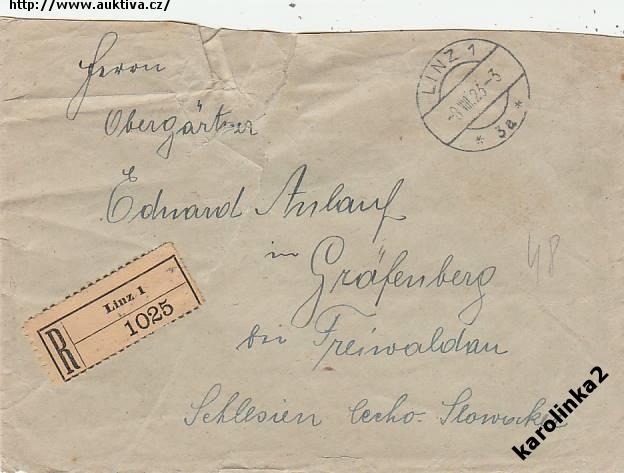 http://www.auktiva.cz/
Herrn
Obergärtner
Eduard Anlauf
in
Gräfenberg
bei Freiwaldau
Schlesien Cecho-Slowackei
LINZ 1
-9.VIII.23-3
* 3a *
R
Linz 1
1025
48
karolinka2